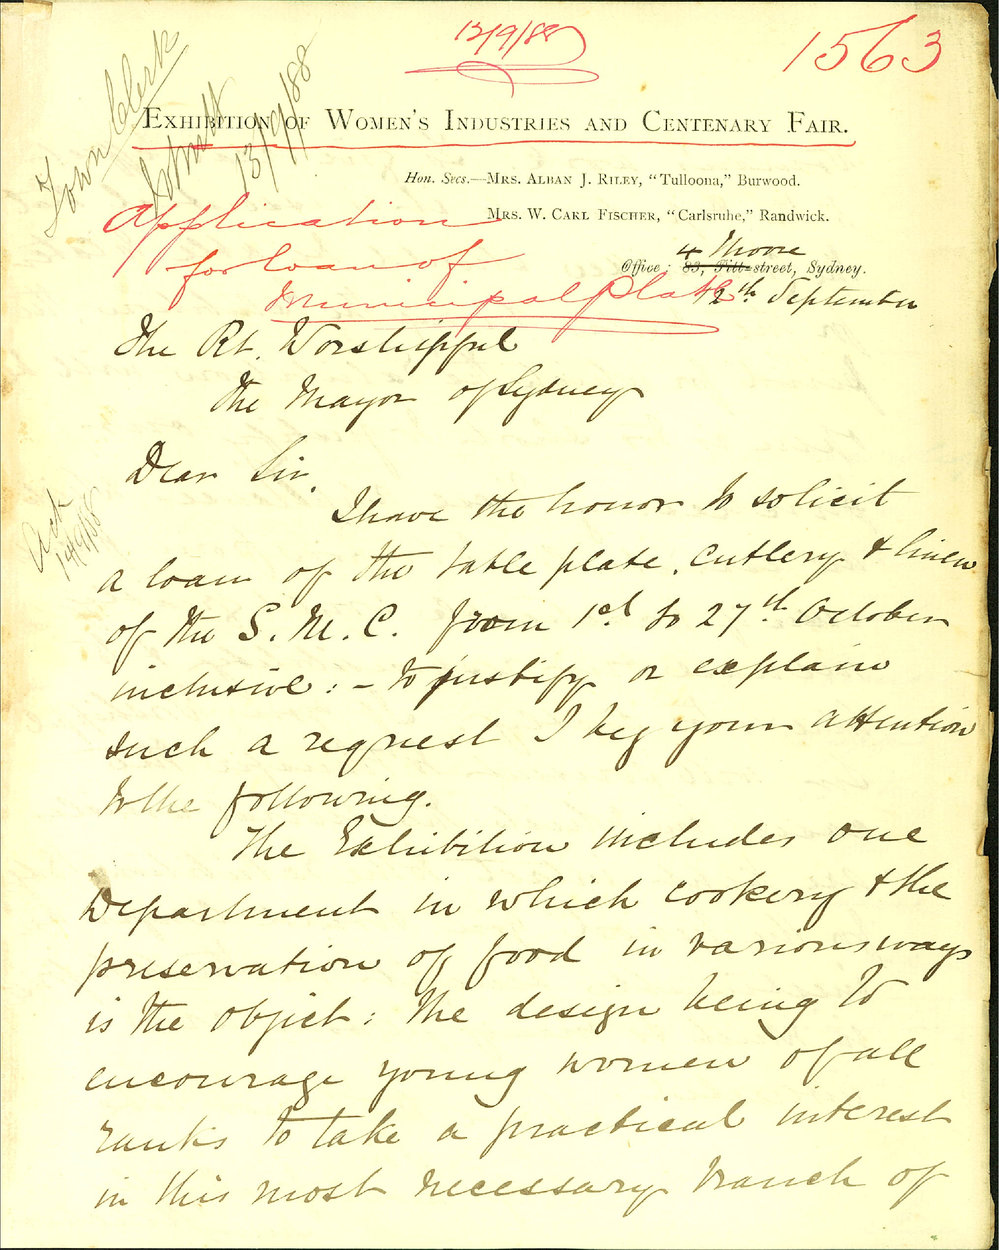 12/9/88
1563
Town Clerk
13/9/88
EXHIBITION OF WOMEN'S INDUSTRIES AND CENTENARY FAIR.
Hon. Secs.—MRS. ALBAN J. RILEY, "Tulloona," Burwood.
MRS. W. CARL FISCHER, "Carlsruhe," Randwick.
4 Moore
Office: 83, Pitt-street, Sydney.
Application
for loan of
Municipal Plate
12th September
The Rt. Worshipful
The Mayor of Sydney
Dear Sir.
I have the honor to solicit
Ack
14/9/88
a loan of the table plate, cutlery & linen
of the S. M. C. from 1st to 27th October
inclusive: – to justify or explain
such a request I beg your attention
to the following.
The Exhibition includes one
Department in which cookery & the
preservation of food in various ways
is the object: the design being to
encourage young women of all
ranks to take a practical interest
in this most necessary branch of